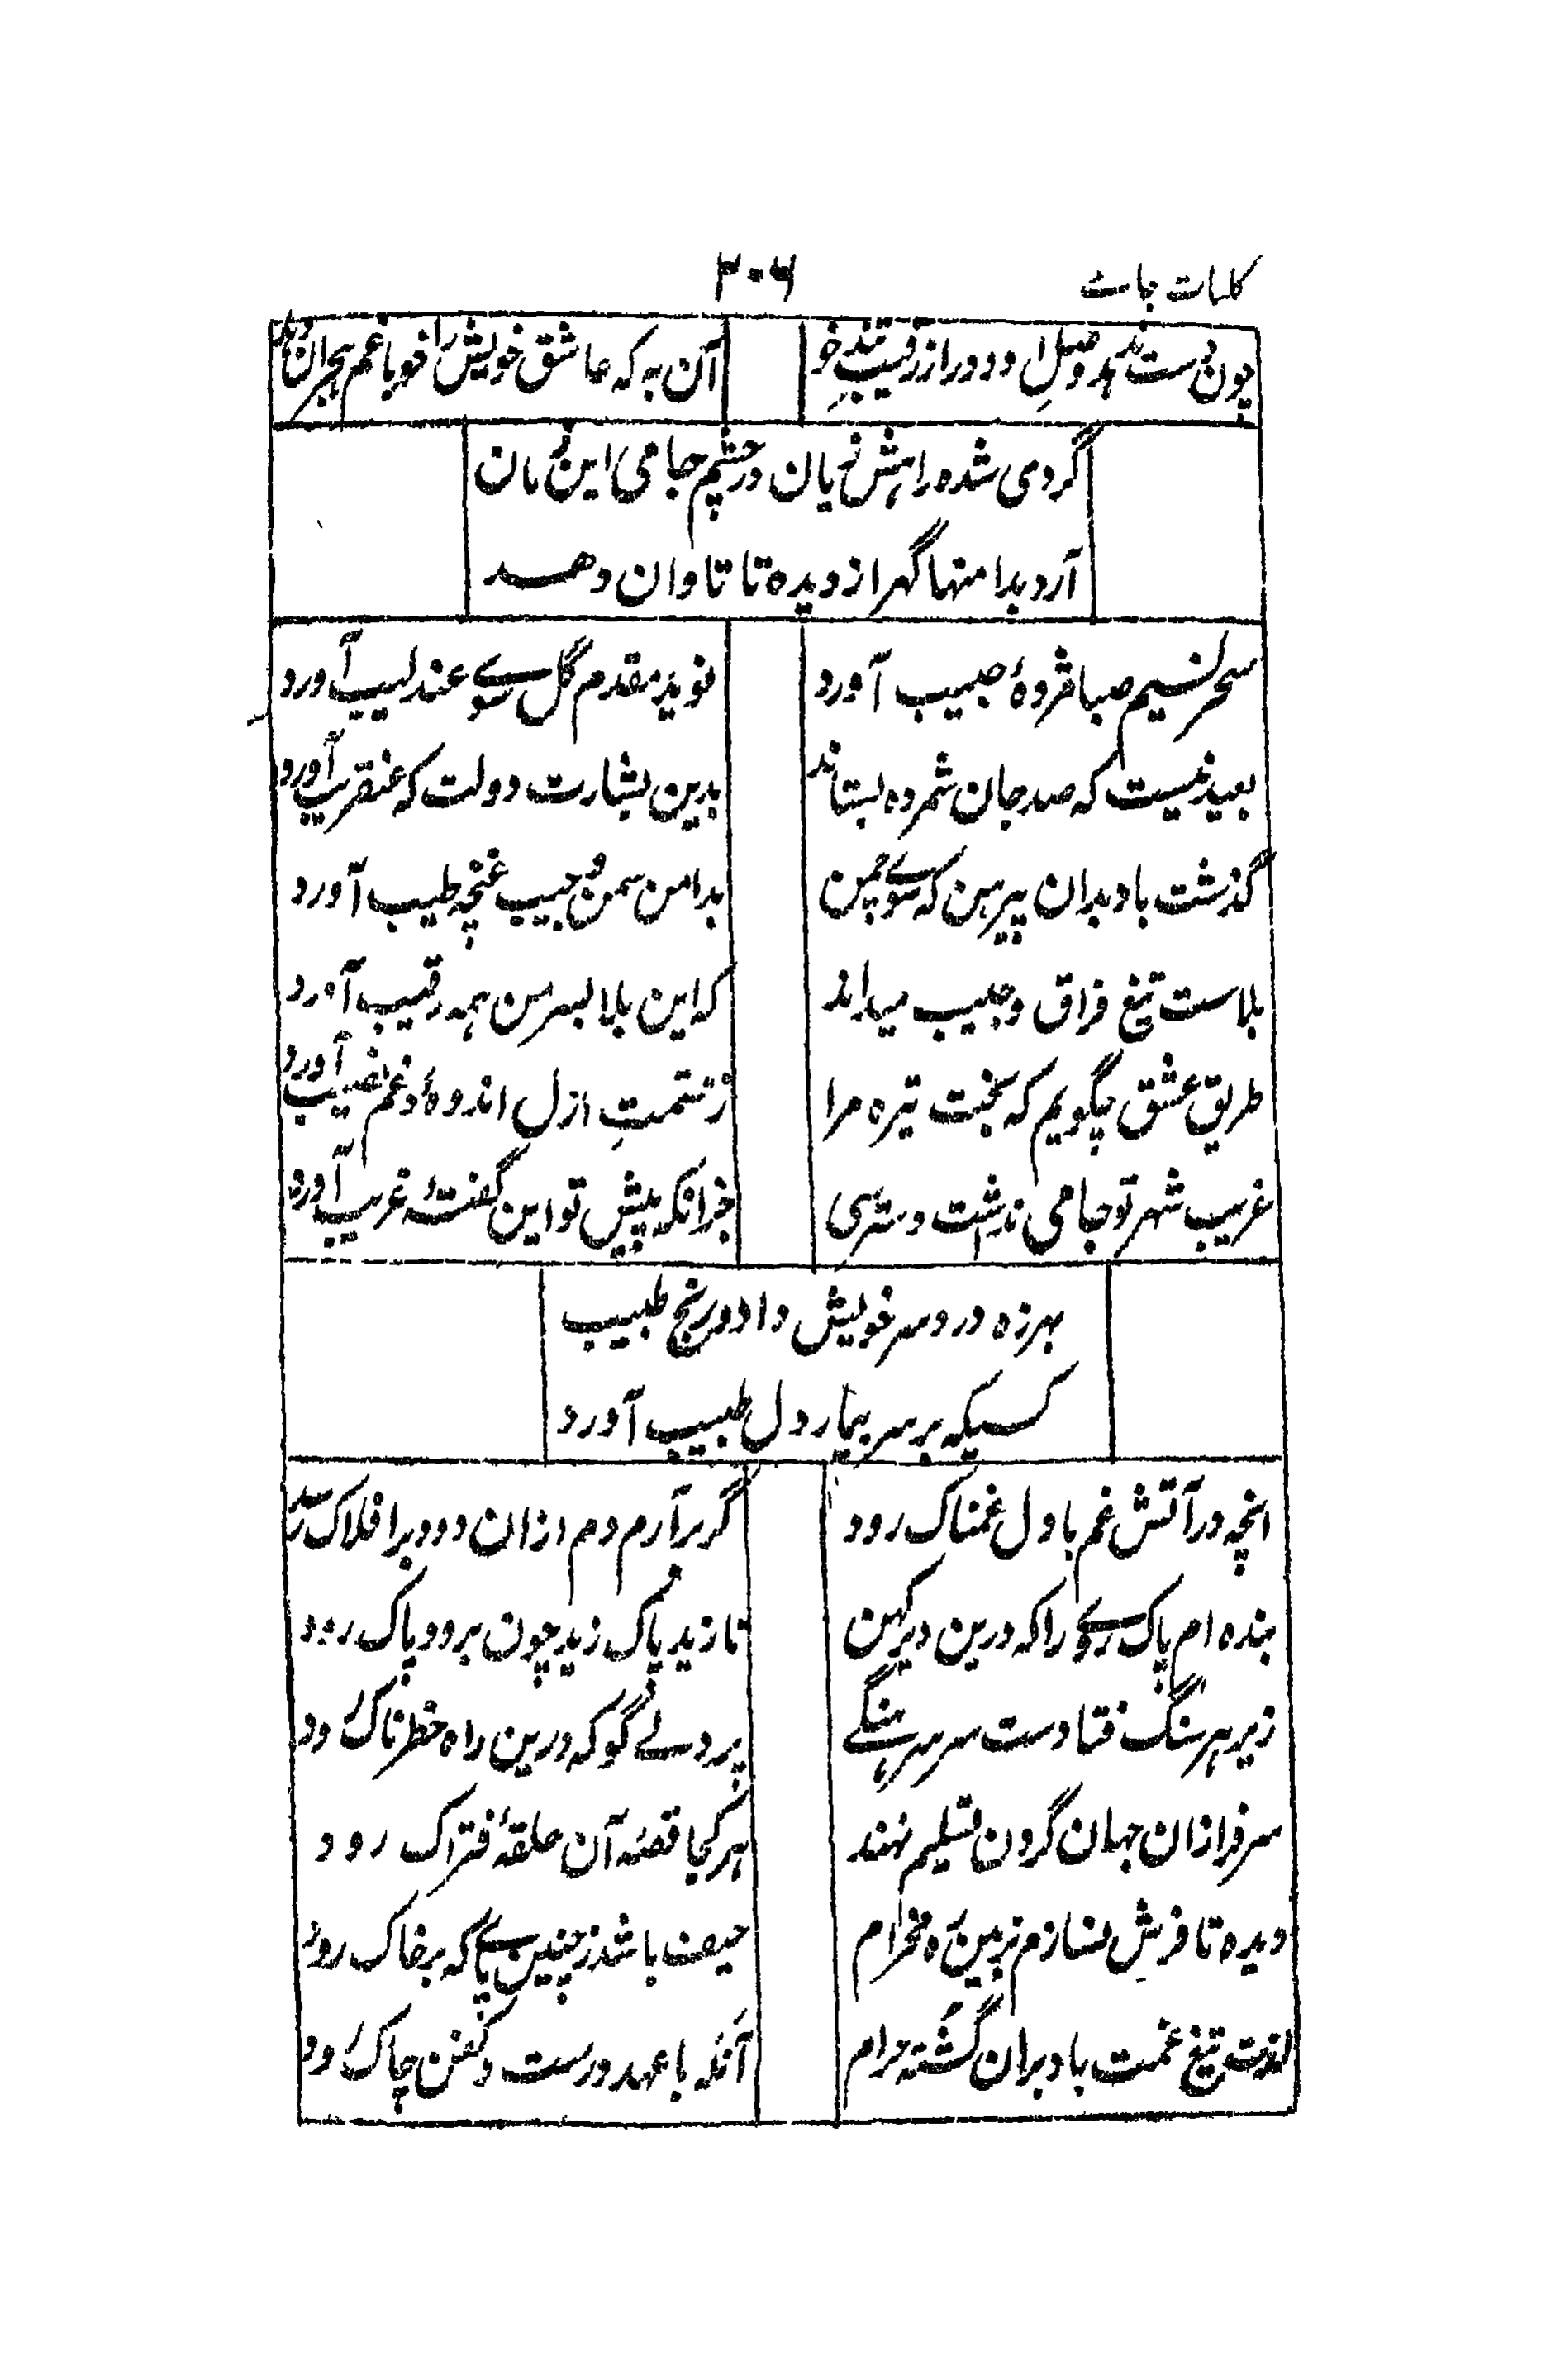 کلیات جامے
۳۰۶
چون دست ندہد وصل او دور از رقیب تندخو
آن به که عاشق خویش را خو با غم ہجران دہد
گردی شده راہش نہان در چشم جامی این زمان
آرد بدامنہا گہر از دیده تا تاوان دهد
سحر نسیم صبا مژدهٔ حبیب آورد
نوید مقدم گل سوے عندلیب آورد
بعید نیست که صد جان شمرده بستاند
بدین بشارت دولت که عنقریب آورد
گذشت باد بدان پیرہن که سوے چمن
بدامن سمن و جیب غنچه طیب آورد
بلاست تیغ فراق و حبیب میداند
که این بلا بسر من ہمه رقیب آورد
طریق عشق چگویم که بخت تیره مرا
ز قسمتِ ازل اندوه و غم نصیب آورد
غریب شہر تو جامی نداشت دسترسی
جز آنکه پیش تو این گفتهٔ غریب آورد
بہرزه درد سر خویش داد و رنج طبیب
کسیکه بر سر بیمار دل طبیب آورد
انچه در آتش غم با دل غمناک رود
گر برآرم دم ازان دود بر افلاک رود
بنده ام پاک روے را که درین دیر کہن
تا زید پاک زید چون برود پاک رود
زیر ہر سنگ فتادست سر سرہنگے
پردلے گو که درین راه خطرناک رود
سرفرازان جہان گردن تسلیم نہند
ہر کجا قصهٔ آن حلقهٔ فتراک رود
دیده تا فرش نسازم بزمین ره مخرام
حیف باشد ز چنین پاے که بر خاک رود
لذت تیغ غمت باد بران گشته حرام
آنکه با عہد درست و کفن چاک رود